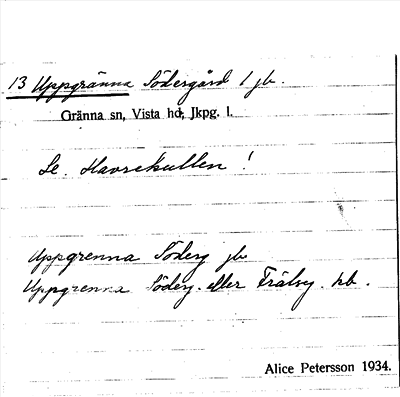 13 Uppgränna Södergård 1 jb.
Gränna sn, Vista hd, Jkpg. l.
Se. Havrekullen !
Uppgrenna Söderg jb
Uppgrenna Söderg. eller Frälseg. hb.
Alice Petersson 1934.